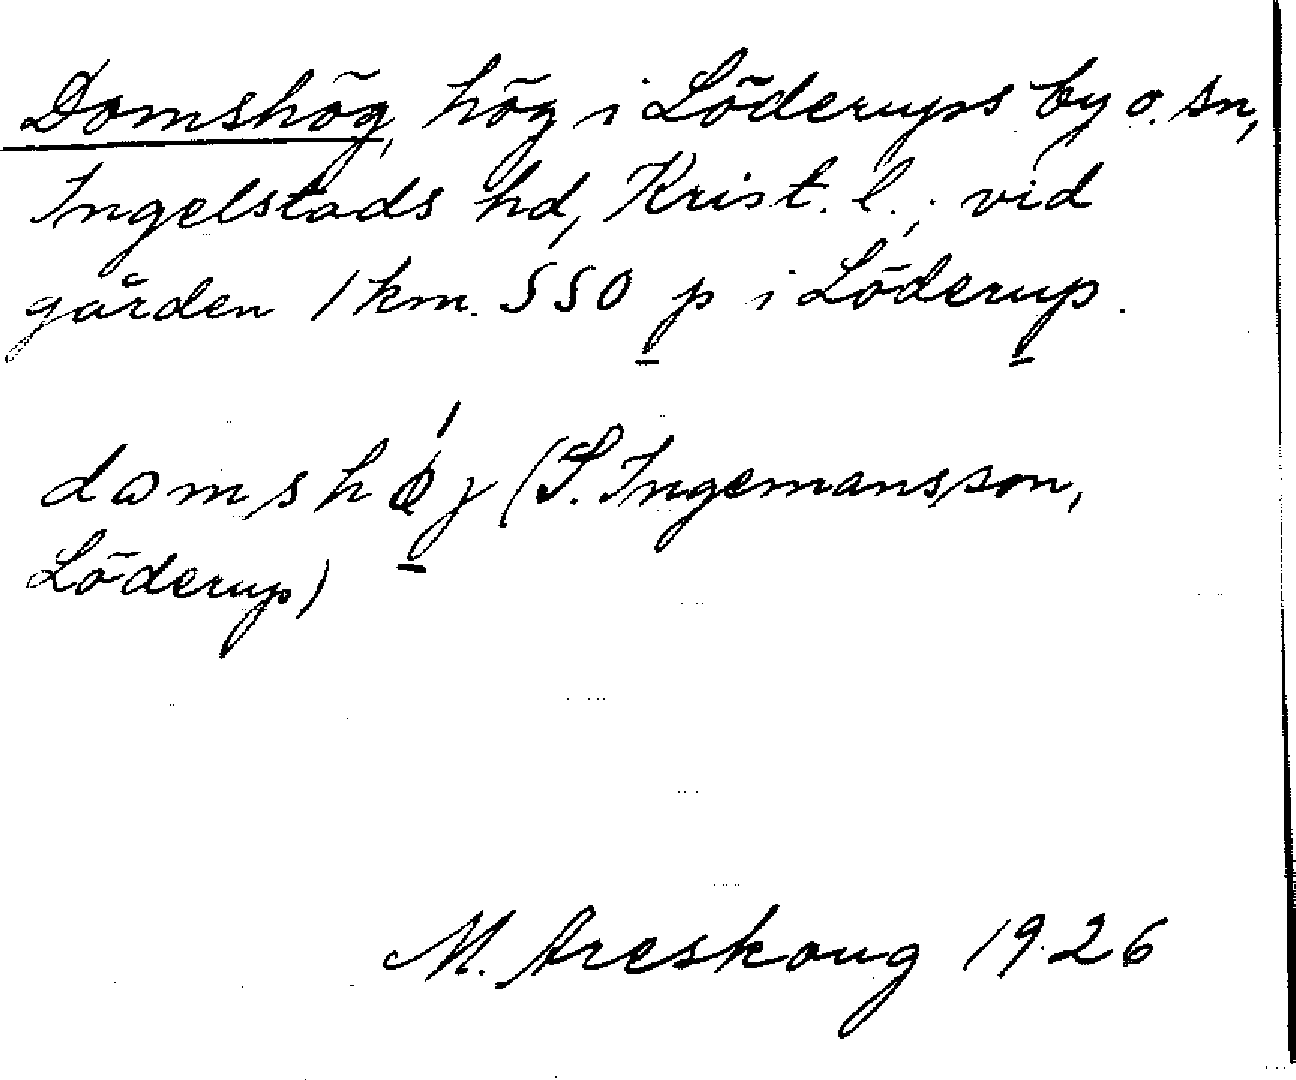 Domshög, hög i Löderups by o. sn,
Ingelstads hd, Krist. l.; vid
gården 1 km. SSO p i Löderup.
damshǿj (S. Ingemansson,
Löderup)
M. Areskoug 1926